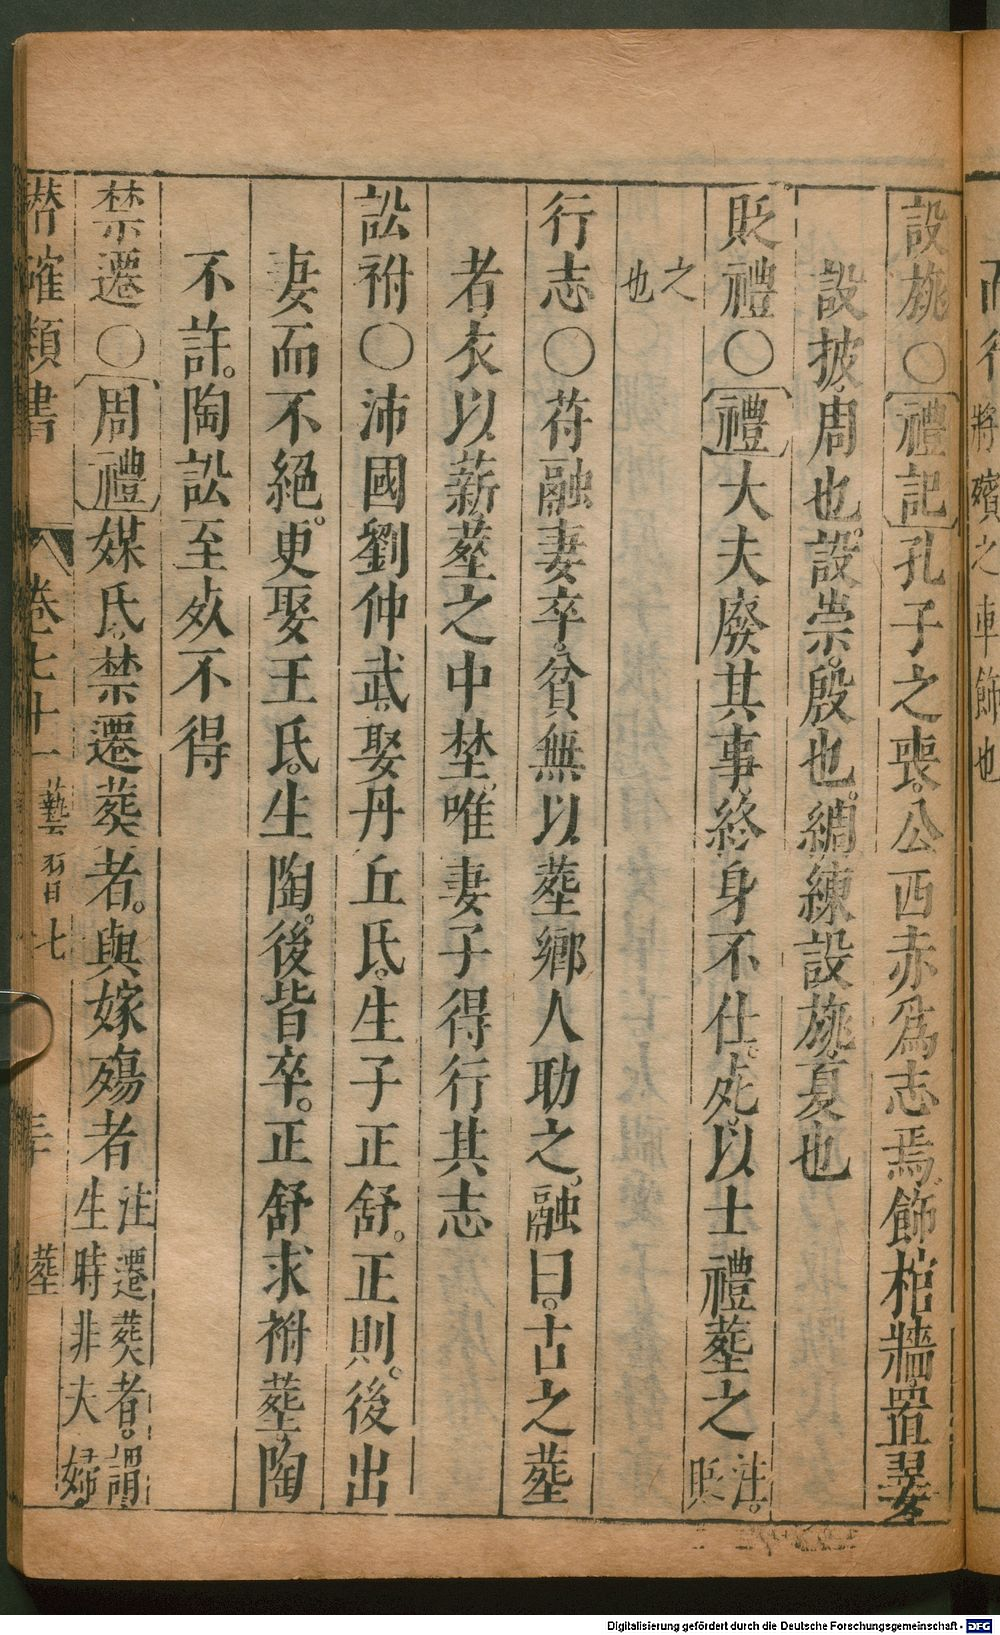 而行將殯之車飾也
設旐○禮記孔子之喪。公西赤爲志焉。飾棺牆置翣
設披。周也。設崇。殷也。綢練設旐。夏也
貶禮○禮大夫廢其事。終身不仕。死。以士禮塟之注。貶
之也
行志○苻融妻卒。貧無以塟。鄉人助之。融曰。古之塟
者。衣以薪。塟之中埜。唯妻子得行其志
訟祔○沛國劉仲武。娶丹丘氏。生子正舒。正則。後出
妻而不絕。更娶王氏。生陶。後皆卒。正舒求祔塟。陶
不許。陶訟至死不得
禁遷○周禮媒氏。禁遷葬者。與嫁殤者注遷葬者。謂生時非夫婦
潜確類書 卷七十一 藝習七 塟
Digitalisierung gefördert durch die Deutsche Forschungsgemeinschaft - DFG